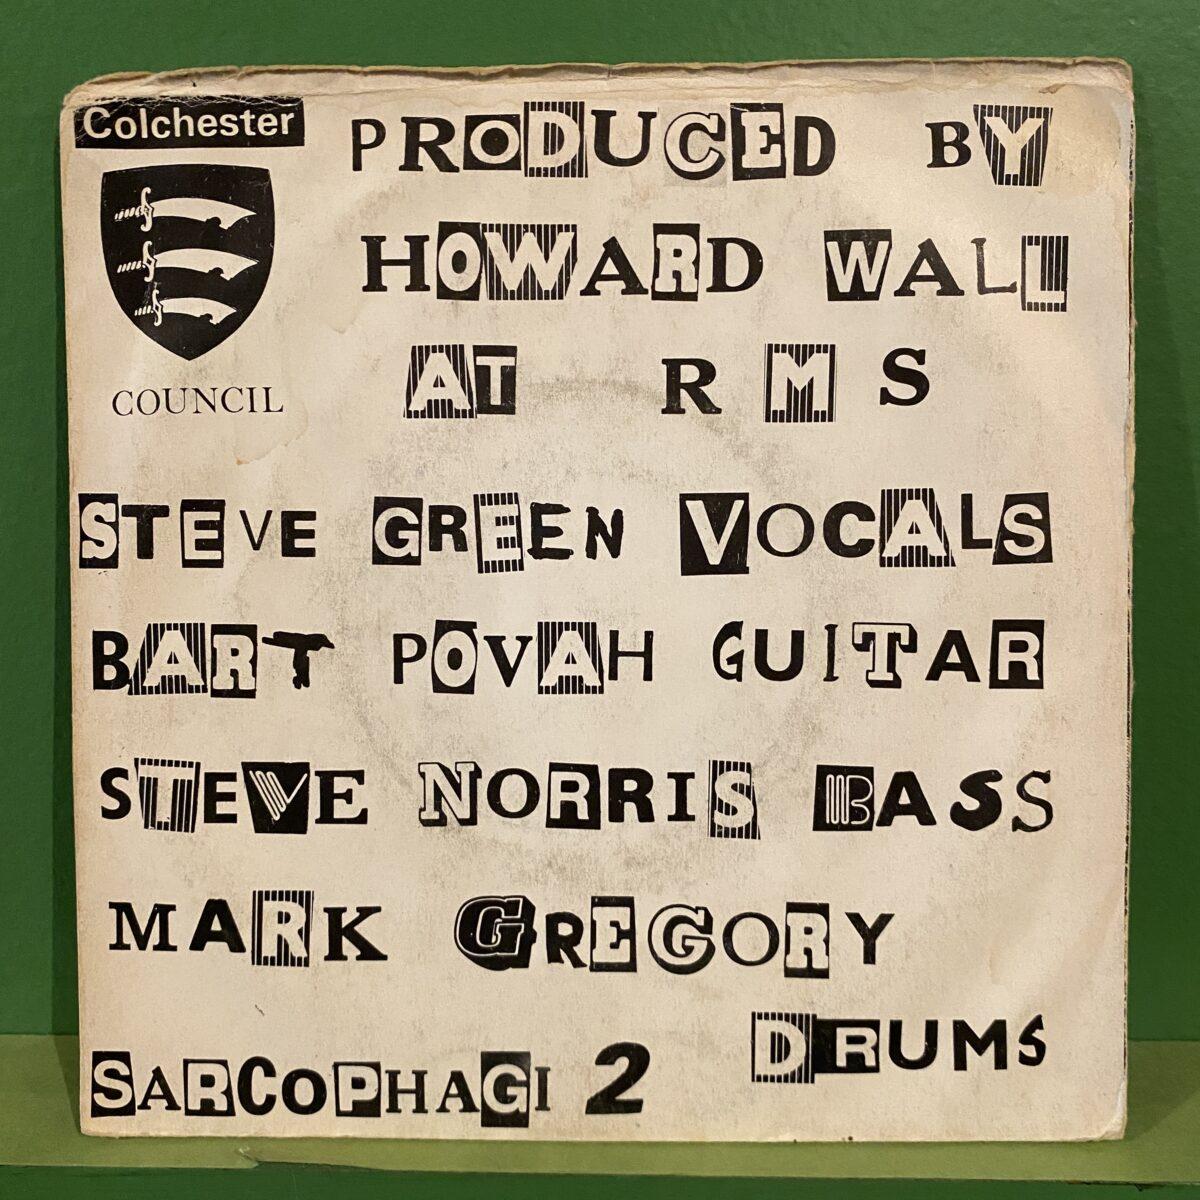 Colchester
COUNCIL
PRODUCED BY
HOWARD WALL
AT RMS
STEVE GREEN VOCALS
BART POVAH GUITAR
STEVE NORRIS BASS
MARK GREGORY
DRUMS
SARCOPHAGI 2